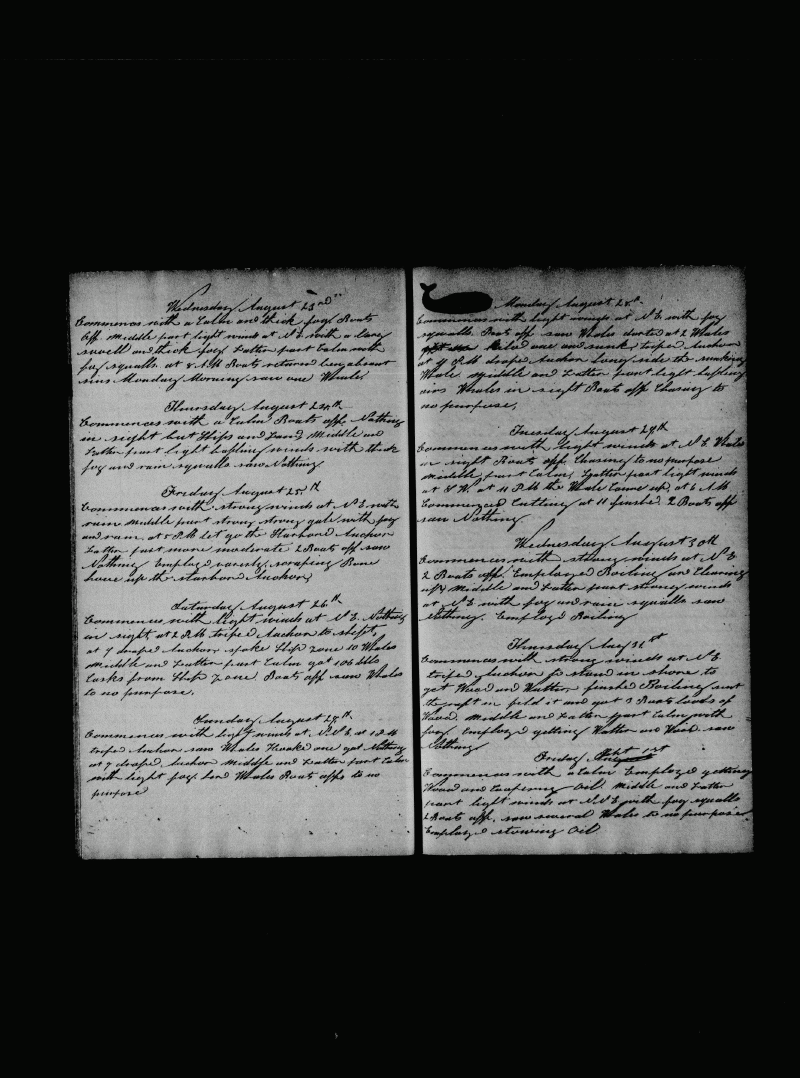 Wednesday August 23rd
Commences with a Calm and thick fog Boats
Off Middle part light wind at N E with a large
swell and thick fog Latter part Calm with
fog squalls at 8 A M Boats return being absent
sins Monday Morning saw one Whale
Thursday August 24th
Commences with a Calm Boats off Nothing
in sight but Ships and Land Middle and
Latter part light bafling winds with thick
fog and rain squalls saw Nothing
Friday August 25th
Commences with strong winds at N E with
rain Middle part strong strong gale with fog
and rain at 8 P M let go the Starbord Anchor
Latter part more moderate 2 Boats off saw
Nothing Employed scraping Bone
hove up the starbord Anchor
Saturday August 26th
Commences with light winds at N E Nothing
in sight at 2 P M triped Anchor to shift
at 7 droped Anchor spoke Ship Zone 10 Whales
Middle and Latter part Calm got 106 bbls
Casks from Ship Zone Boats off saw Whales
to no purpose.
Sunday August 27th
Commences with light winds at N.N.E. at 1 P M
triped Anchor saw Whales Hooked one got Nothing
at 7 droped Anchor Middle and Latter part Calm
with light fog Whales Boats off to no
purpose
Monday August 28th
Commences with light winds at N E with fog
squalls Boats off saw Whales darted at 2 Whales
killed one and sunk triped Anchor
at 4 P M droped Anchor Long side the sunken
Whale Middle and Latter part light bafling
airs Whales in sight Boats off Chasing to
no purpose.
Tuesday August 29th
Commences with light winds at N E Whales
in sight Boats off Chasing to no purpose
Middle part Calm Latter part light winds
at S W. at 11 P M the Whale Came up at 6 A M
Commenced Cutting at 11 finshe 2 Boats off
saw Nothing
Wednesday August 30th
Commences with strong winds at N E
2 Boats off. Employed Boiling and Clearing
up Middle and Latter part strong winds
at N E with fog and rain squalls saw
Nothing. Employd Boiling
Thursday Aug 31st
Commences with strong winds at N E
triped Anchor to stand in shore to
get Wood and Watter finshe Boiling sent
the raft in field it and got 3 Boats loads of
Wood. Middle and Latter part Calm with
fog Employed getting Watter and Wood saw
Nothing
Friday Sept 1st
Commences with a Calm Employd getting
Wood and Coopering Oil Middle and Latter
part light winds at N.N E with fog squalls
2 Boats off. saw several Whales to no purpose.
Employd stowing Oil